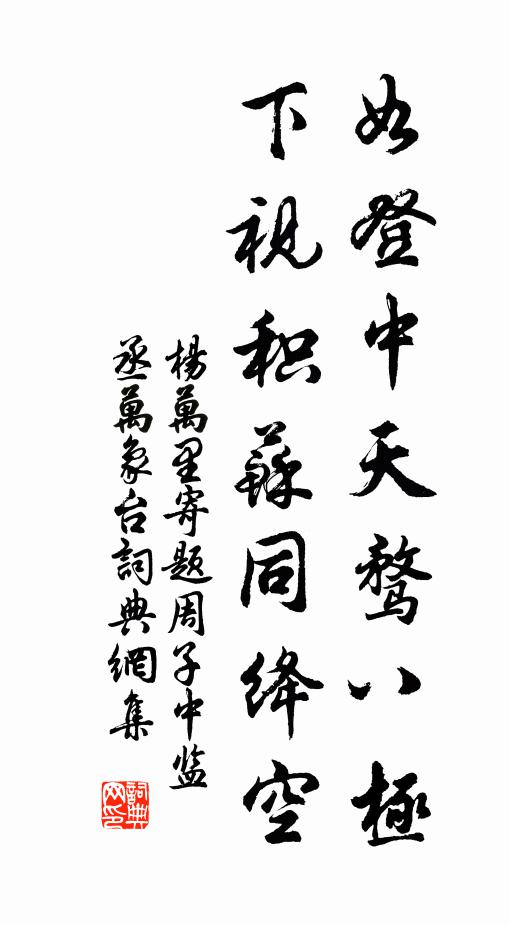 如登中天骛八極
下視积蘇同絳空
楊萬里寄题周子中监
丞萬象台詞典網集
詞典网印